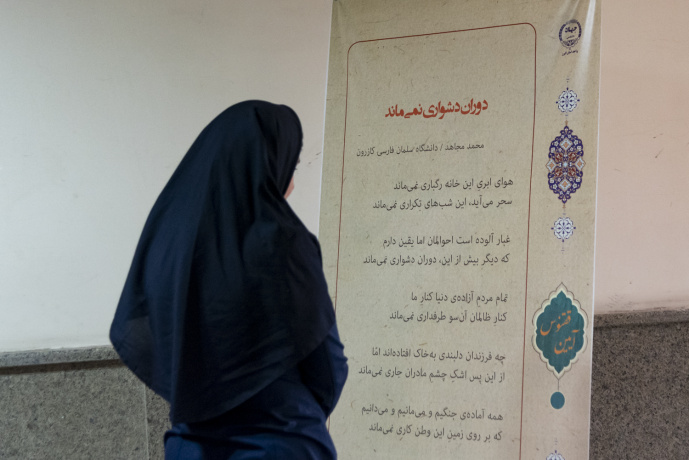 دوران دشواری نمی‌ماند
محمد مجاهد / دانشگاه سلمان فارسی کازرون
هوای ابریِ این خانه رگباری نمی‌ماند
سحر می‌آید، این شب‌های تکراری نمی‌ماند
غبار آلوده است احوالمان اما یقین دارم
که دیگر بیش از این، دوران دشواری نمی‌ماند
تمام مردمِ آزاده‌ی دنیا کنارِ ما
کنار ظالمان آن‌سو طرفداری نمی‌ماند
چه فرزندان دلبندی به‌خاک افتاده‌اند امّا
از این پس اشکِ چشمِ مادران جاری نمی‌ماند
همه آماده‌ی جنگیم و می‌مانیم و می‌دانیم
که بر روی زمینِ این وطن کاری نمی‌ماند
آیین ققنوس